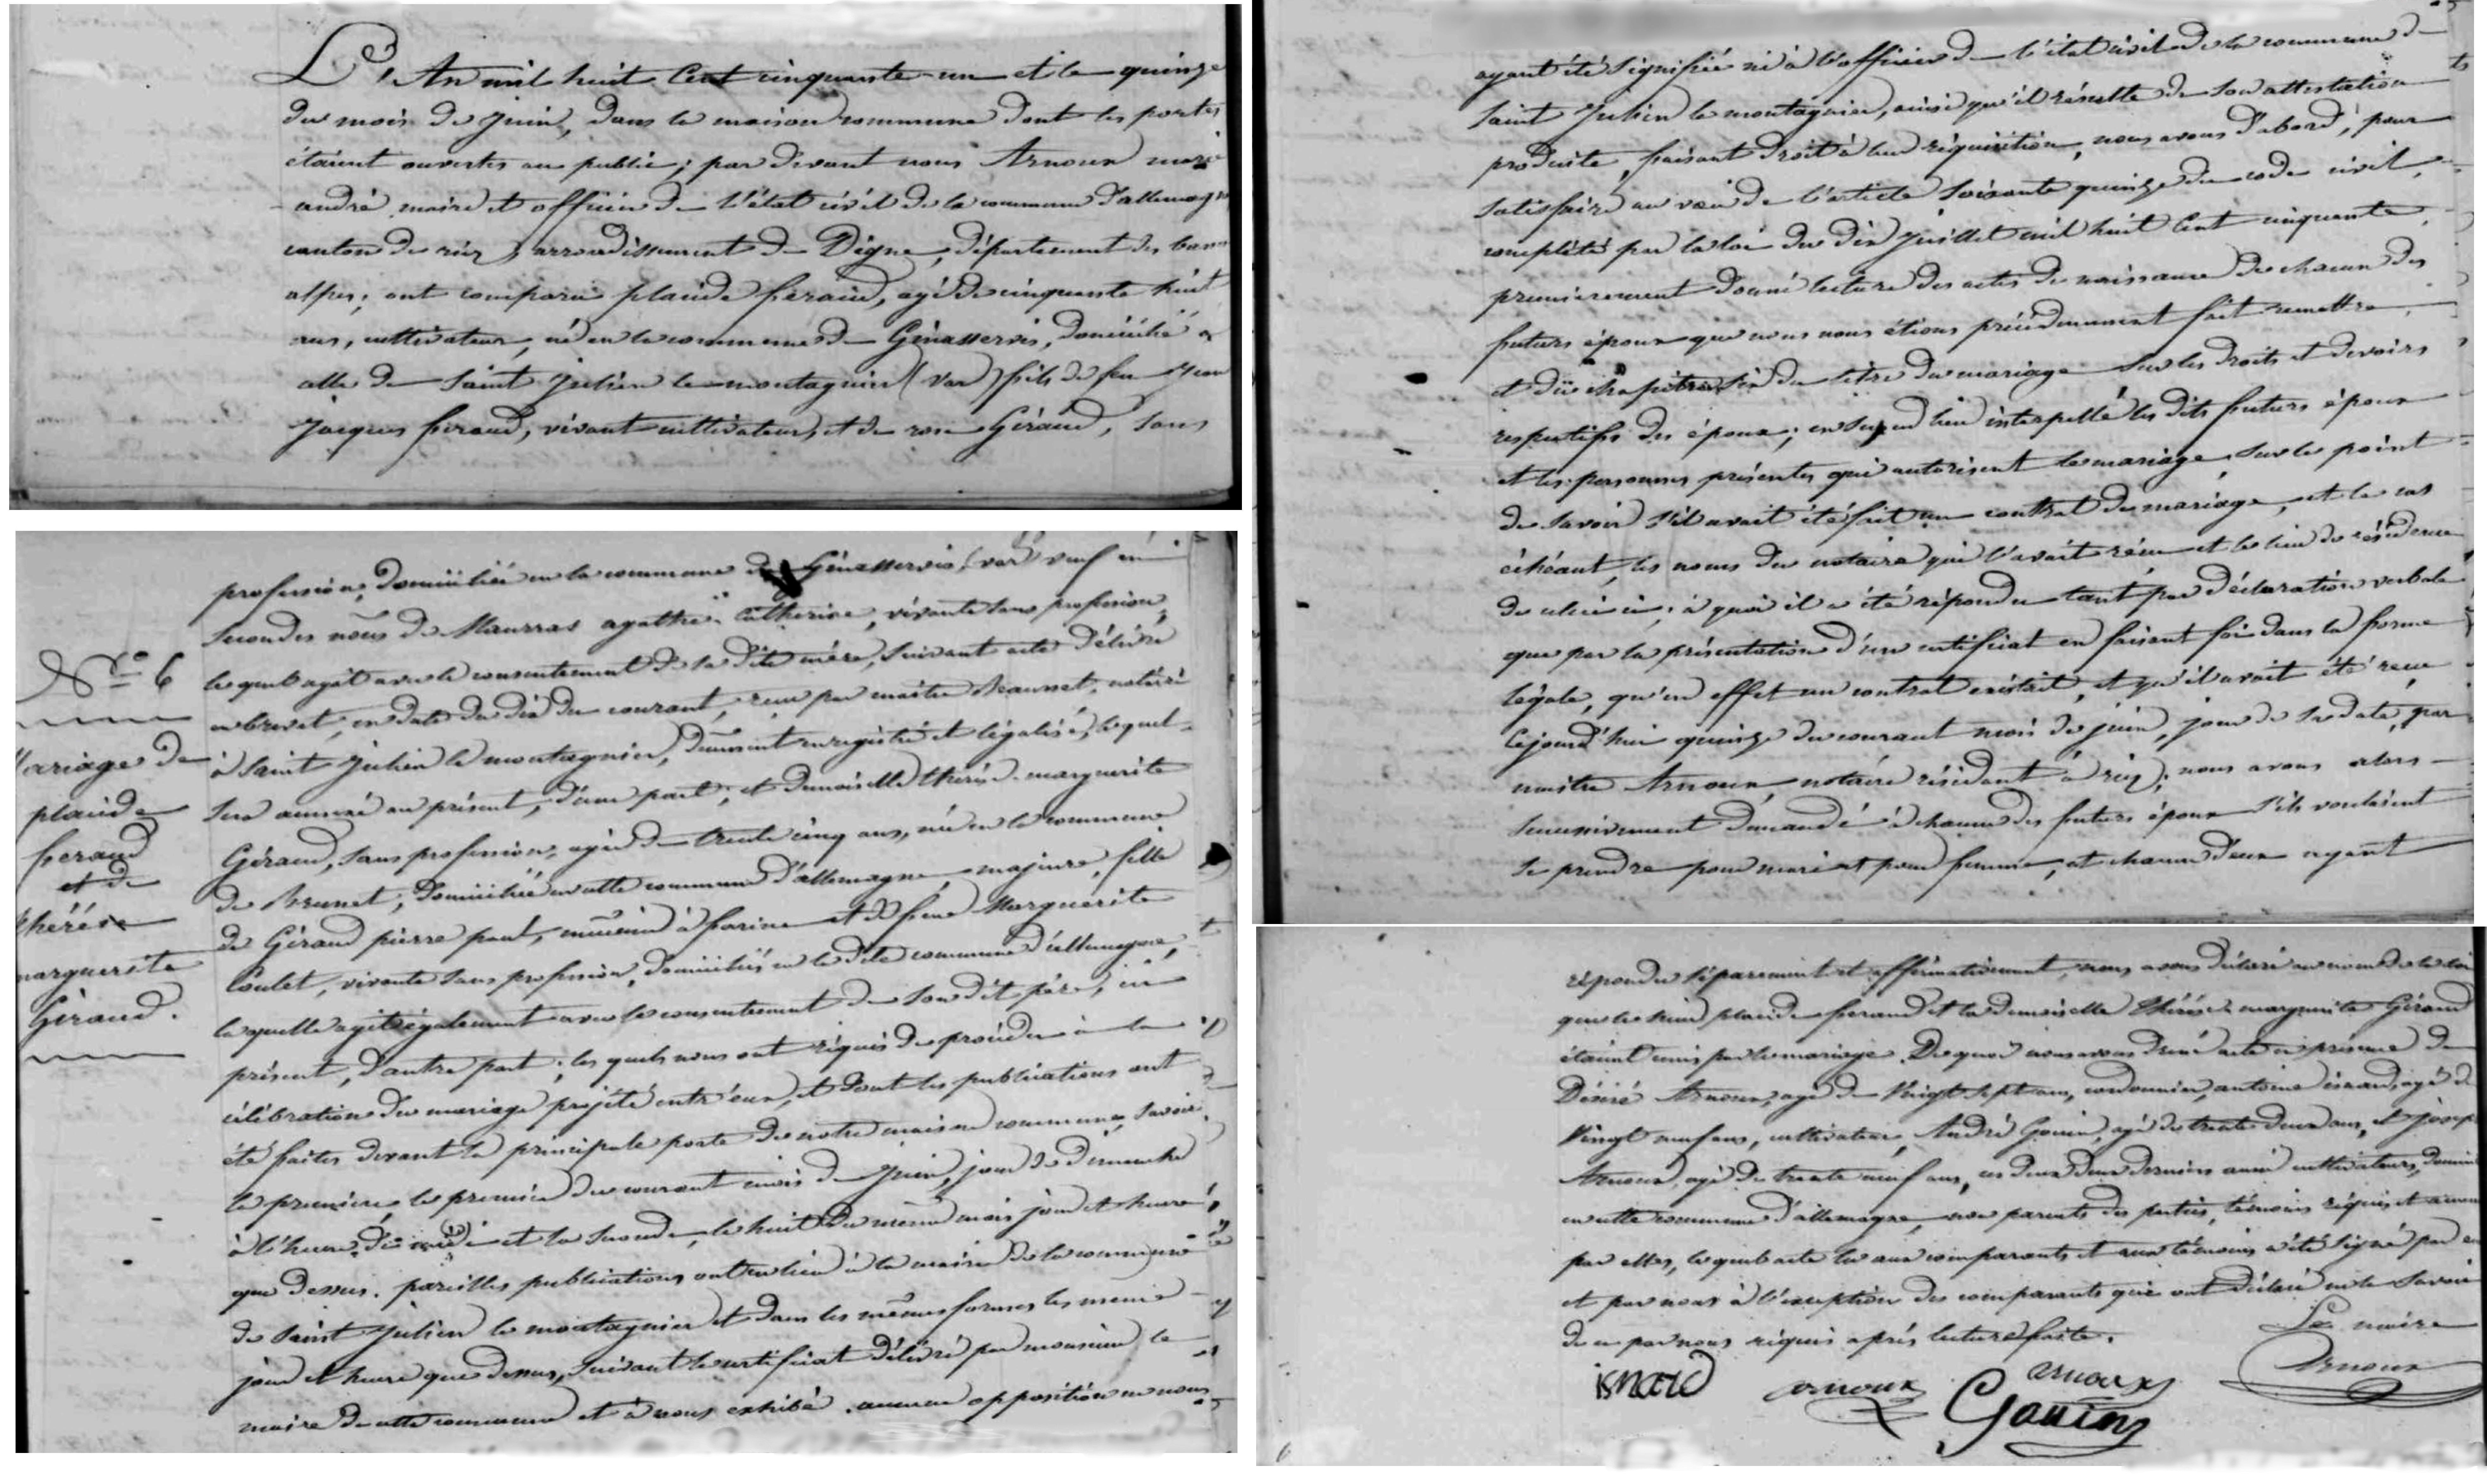 L'An mil huit Cent cinquante-un et le quinze
du mois de juin, dans la maison commune dont les portes
étaient ouvertes au public; par devant nous Arnoux marie
andré maire et officier de l'état civil de la commune d'allemagne
canton de riez, arrondissement de Digne, département des basses
alpes; ont comparu placide feraud, agé de cinquante huit
ans, cultivateur, né en la commune de Ginasservis, domicilié en
celle de Saint Julien le montagnier (var) fils de feu Jean
Jacques feraud, vivant cultivateur, et de rose Géraud, sans
profession, domiciliée en la commune de Ginasservis (var) veuf en
secondes nôces de Maurras agathe Catherine, vivante sans profession,
lequel agit avec le consentement de sa dite mère, suivant acte délivré
en brevet, en date du dix du courant, reçu par maître Beausset, notaire
à Saint Julien le montagnier, dûment enregistré et légalisé, lequel
sera annexé au présent, d'une part; et demoiselle thérèse marguerite
Géraud, sans profession, agée de trente cinq ans, née en la commune
de Brunet, domiciliée en cette commune d'allemagne, majeure, fille
de Géraud pierre paul, meunier à farine et de feue Marguerite
Coulet, vivante sans profession, domiciliés en la dite commune d'allemagne,
laquelle agit également avec le consentement de son dit père, ici
présent, d'autre part; lesquels nous ont requis de procéder à la
célébration du mariage projeté entr'eux, et dont les publications ont
été faites devant la principale porte de notre maison commune, savoir:
la première, le premier du courant mois de juin, jour de dimanche
à l'heure de midi et la seconde, le huit du même mois jour et heure
que dessus. pareilles publications ont eu lieu à la mairie de la commune
de Saint Julien le montagnier et dans les mêmes formes les même
jour et heure que dessus, suivant le certificat délivré par monsieur le
maire de cette commune et à nous exhibé. aucune opposition ne nous
N° 6
Mariage de
placide
feraud
et de
thérèse
marguerite
Géraud.
ayant été signifiée ni à l'officier de l'état civil de la commune de
Saint Julien le montagnier, ainsi qu'il résulte de son attestation
produite, faisant droit à leur réquisition, nous avons d'abord, pour
satisfaire au vœu de l'article soixante quinze du code civil,
complété par la loi du dix juillet mil huit Cent cinquante,
premierement donné lecture des actes de naissance de chacun des
futurs époux que nous nous étions précédemment fait remettre,
et du chapitre six du titre du mariage sur les droits et devoirs
respectifs des époux; en second lieu interpellé les dits futurs époux
et les personnes présentes qui autorisent le mariage, sur le point
de savoir s'il avait été fait un contrat de mariage, et le cas
échéant, les noms du notaire qui l'avait réçu et le lieu de résidence
de celui ci; à quoi il a été répondu tant par déclaration verbale
que par la présentation d'un certificat en faisant foi dans la forme
légale, qu'en effet un contrat existait, et qu'il avait été reçu
cejourd'hui quinze du courant mois de juin, jour de sa date, par
maître Arnoux, notaire résidant à riez; nous avons alors
successivement demandé à chacun des futurs époux s'ils voulaient
se prendre pour mari et pour femme, et chacun d'eux ayant
répondu séparement et affirmativement, nous avons déclaré au nom de la loi
que le sieur placide feraud et la demoiselle Thérèse marguerite Géraud
étaient unis par le mariage. De quoi nous avons dressé acte en présence de
Désiré Arnoux, agé de vingt sept ans, cordonnier, antoine isnard, agé de
vingt neuf ans, cultivateur, André Gouin, agé de trente deux ans, et joseph
Arnoux, agé de trente neuf ans, ces deux derniers aussi cultivateurs, domiciliés
en cette commune d'allemagne, non parents des parties, témoins réquis et amenés
par elles, lequel acte lu aux comparants et aux témoins a été signé par eux
et par nous à l'exception des comparants qui ont déclaré ne le savoir
de ce par nous réquis après lecture faite.
Le maire
isnard arnoux arnoux Arnoux
Gouin